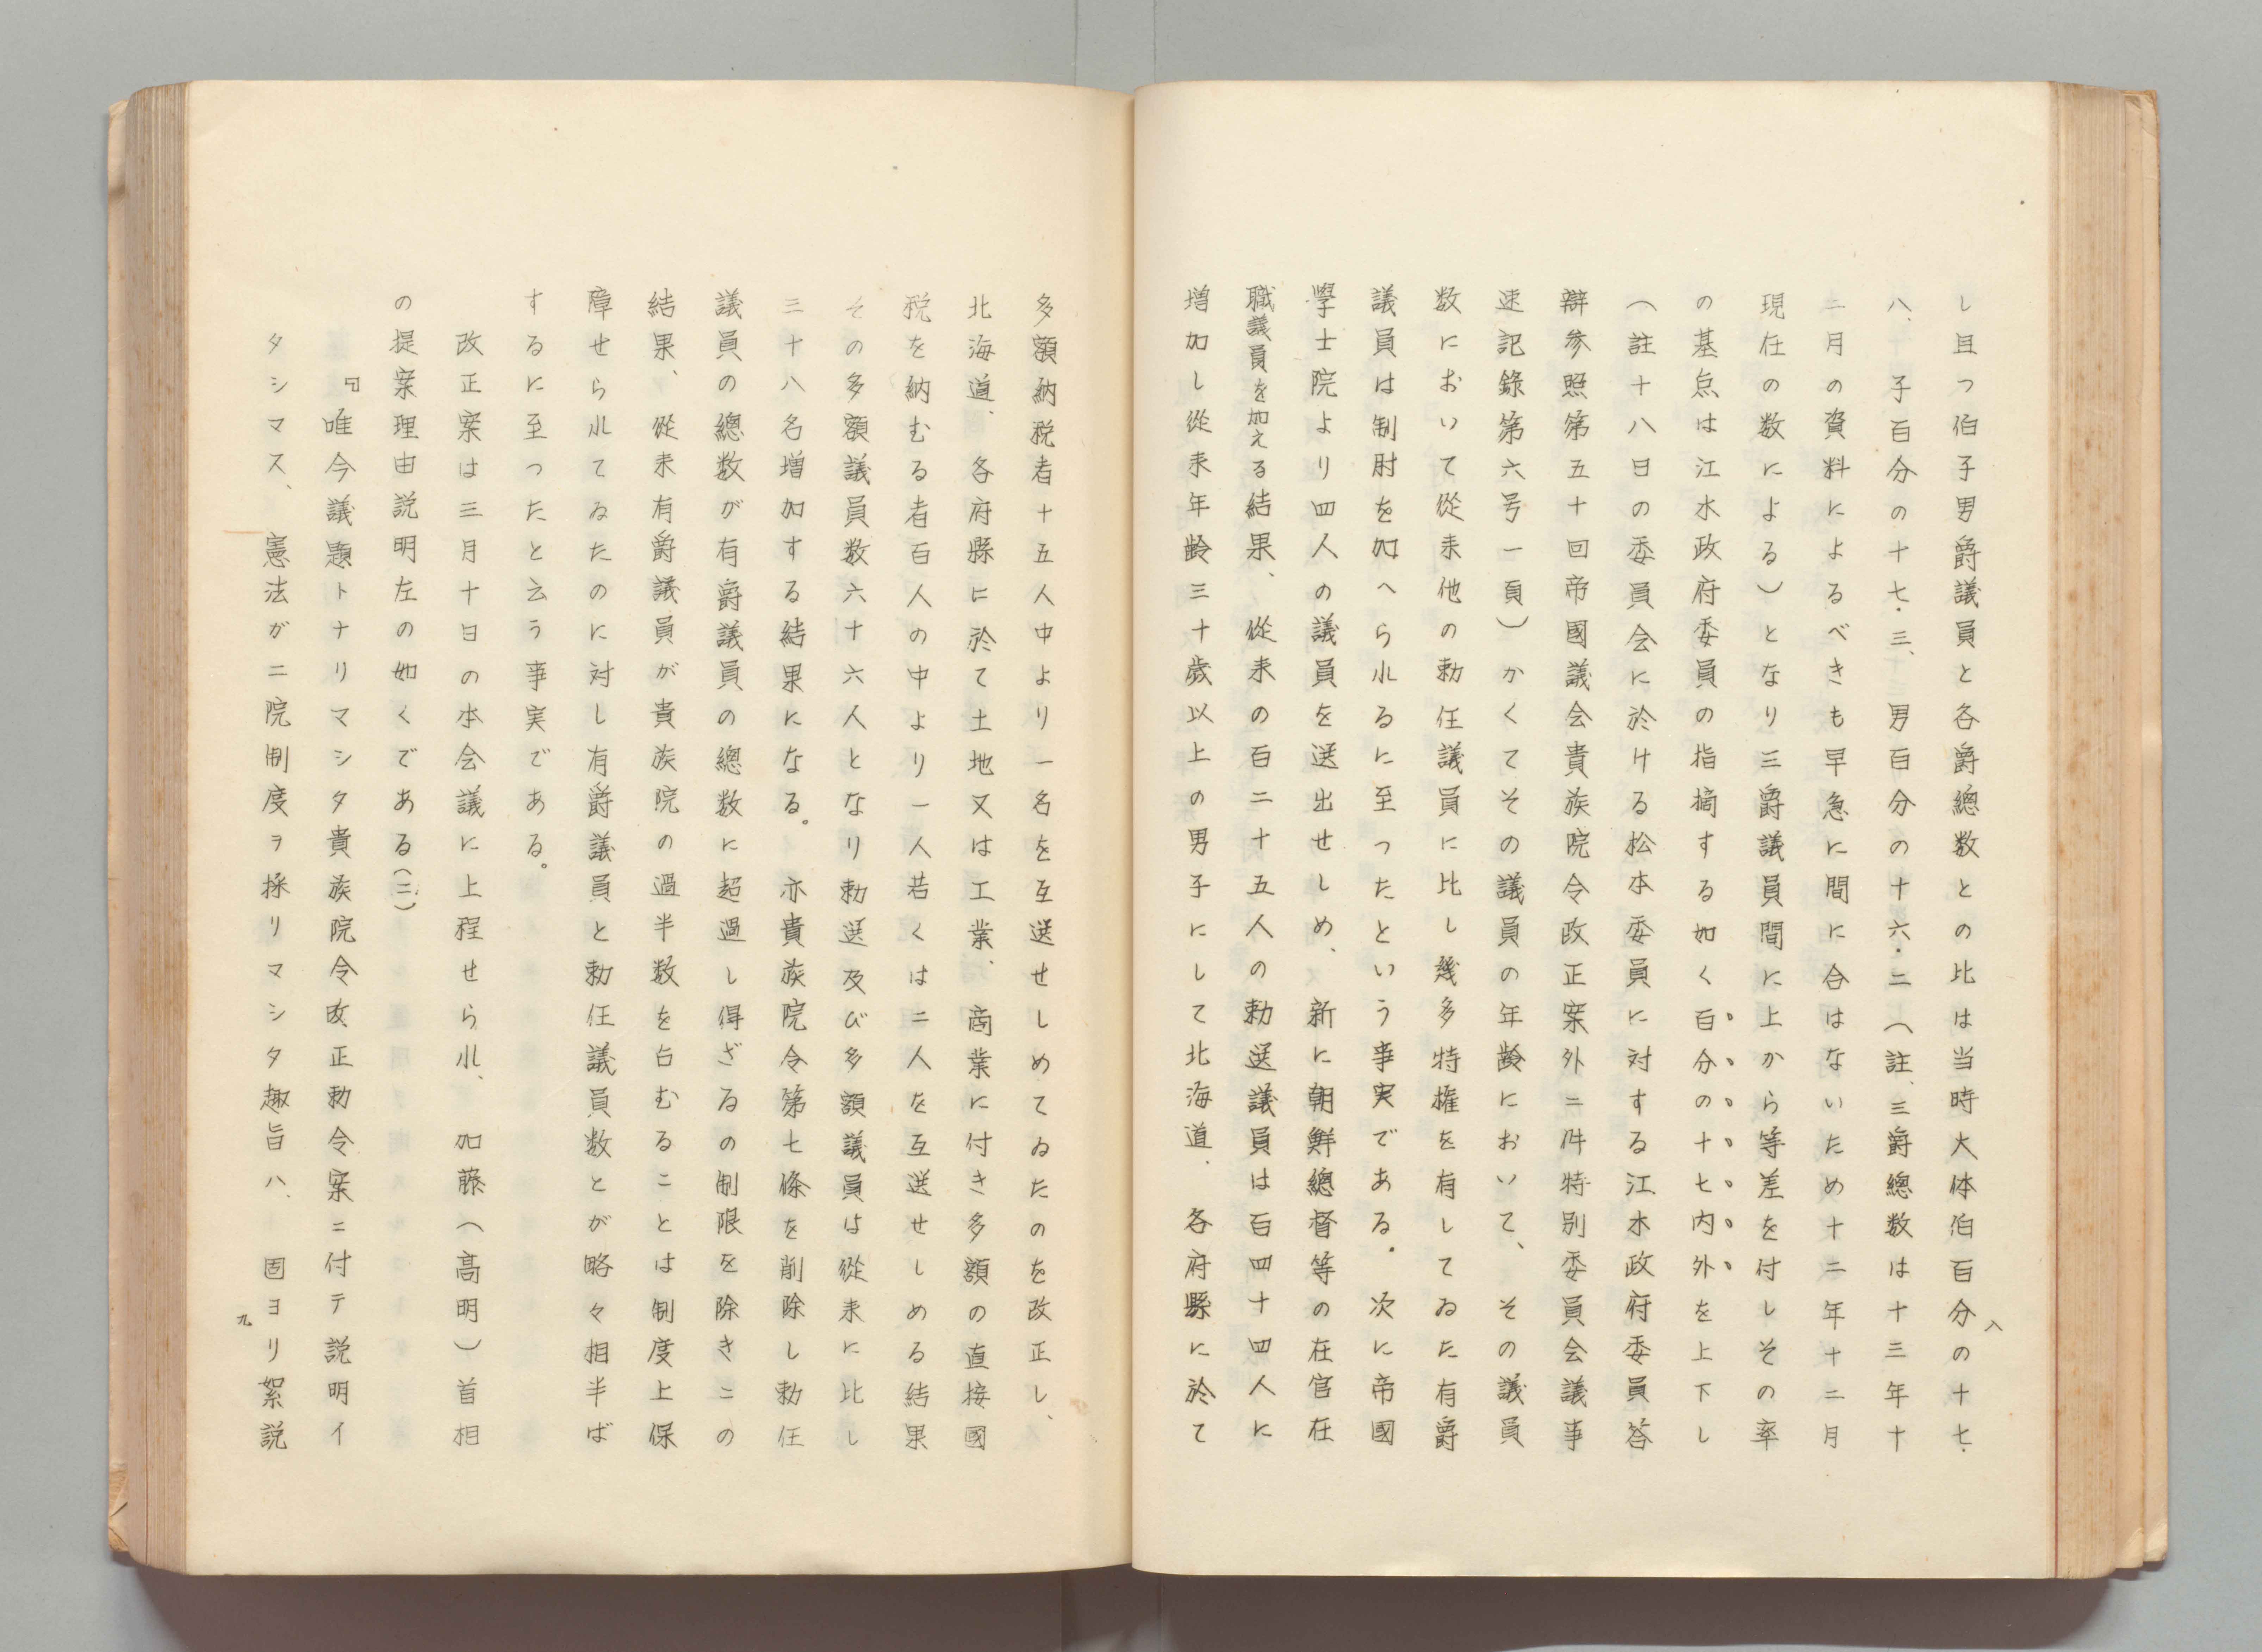 し且つ伯子男爵議員と各爵總数との比は当時大体伯百分の十七・
八、子百分の十七・三、男百分の十六・二（註、三爵總数は十三年十
二月の資料によるべきも早急に間に合はないため十二年十二月
現任の数による）となり三爵議員間に上から等差を付しその率
の基点は江木政府委員の指摘する如く百分の十七内外を上下し
（註十八日の委員会に於ける松本委員に対する江木政府委員答
辯参照第五十回帝國議会貴族院令改正案外二件特別委員会議事
速記錄第六号一頁）かくてその議員の年齢において、その議員
数において從来他の勅任議員に比し幾多特権を有してゐた有爵
議員は制肘を加へられるに至つたという事実である。次に帝國
學士院より四人の議員を選出せしめ、新に朝鮮總督等の在官在
職議員を加える結果、從来の百二十五人の勅選議員は百四十四人に
増加し從来年齢三十歳以上の男子にして北海道、各府縣に於て
八
多額納税者十五人中より一名を互選せしめてゐたのを改正し、
北海道、各府縣に於て土地又は工業、商業に付き多額の直接國
税を納むる者百人の中より一人若くは二人を互選せしめる結果
その多額議員数六十六人となり勅選及び多額議員は從来に比し
三十八名増加する結果になる。亦貴族院令第七條を削除し勅任
議員の總数が有爵議員の總数に超過し得ざるの制限を除きこの
結果、從来有爵議員が貴族院の過半数を占むることは制度上保
障せられてゐたのに対し有爵議員と勅任議員数とが略々相半ば
するに至つたと云う事実である。
改正案は三月十日の本会議に上程せられ、加藤（高明）首相
の提案理由説明左の如くである（二）
『唯今議題トナリマシタ貴族院令改正勅令案ニ付テ説明イ
タシマス、憲法ガ二院制度ヲ採リマシタ趣旨ハ、固ヨリ絮説
九